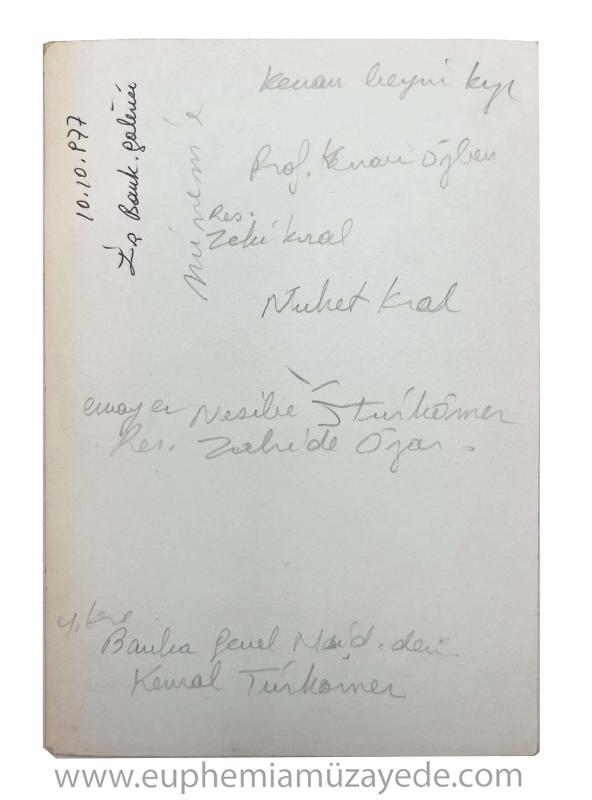 10.10.977
Bank. galerisi
Kenan beyin kızı
Prof. Kenan Özben
Res.
Zeki Kral
Nuket Kral
Nesibe Türkömer
Res. Zahide Özar.
Banka genel Müd. den
Kemal Türkömer
www.euphemiamüzayede.com